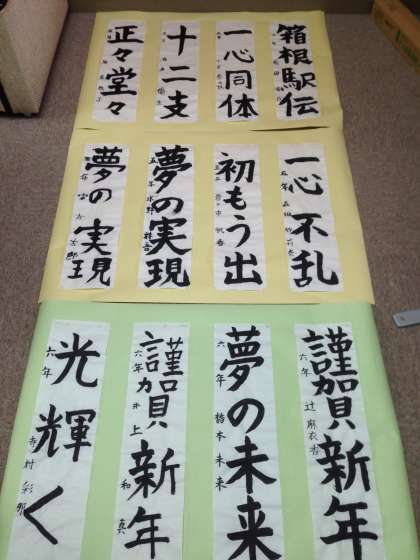 箱根駅伝
一心同体
十二支
正々堂々
一心不乱
五年
初もう出
夢の実現
五年
夢の実現
謹賀新年
六年 辻 麻衣香
夢の未来
六年 橋本 未来
謹賀新年
六年 井上 和真
光輝く
六年 寺村 彩那